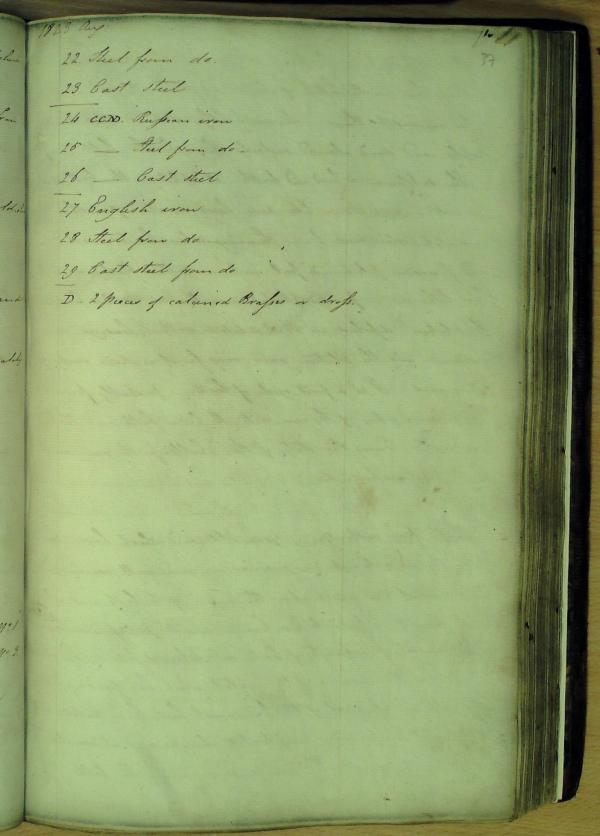 1828 Aug
37
22 Steel from do.
23 Cast steel
24 CCND. Russian iron
25 — Steel from do.
26 — Cast steel
27 English iron
28 Steel from do
29 Cast steel from do
D. 2 pieces of calcined Brasses or dross.